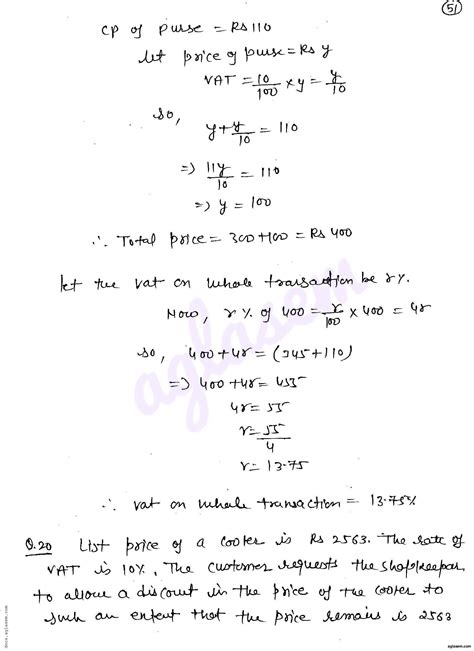 51
CP of purse = Rs 110
let price of purse = Rs y
VAT = 10/100 × y = y/10
so,
y + y/10 = 110
=> 11y/10 = 110
=> y = 100
∴ Total price = 300+100 = Rs 400
let the vat on whole transaction be r%.
Now, r% of 400 = r/100 × 400 = 4r
so, 400+4r = (345+110)
=> 400+4r = 455
4r = 55
r = 55/4
r = 13.75
∴ vat on whole transaction = 13.75%
Q.20 List price of a cooler is Rs 2563. The rate of
VAT is 10%. The customer requests the shopkeeper
to allow a discount in the price of the cooler to
such an extent that the price remains is 2563
aglasem
docs.aglasem.com
aglasem.com